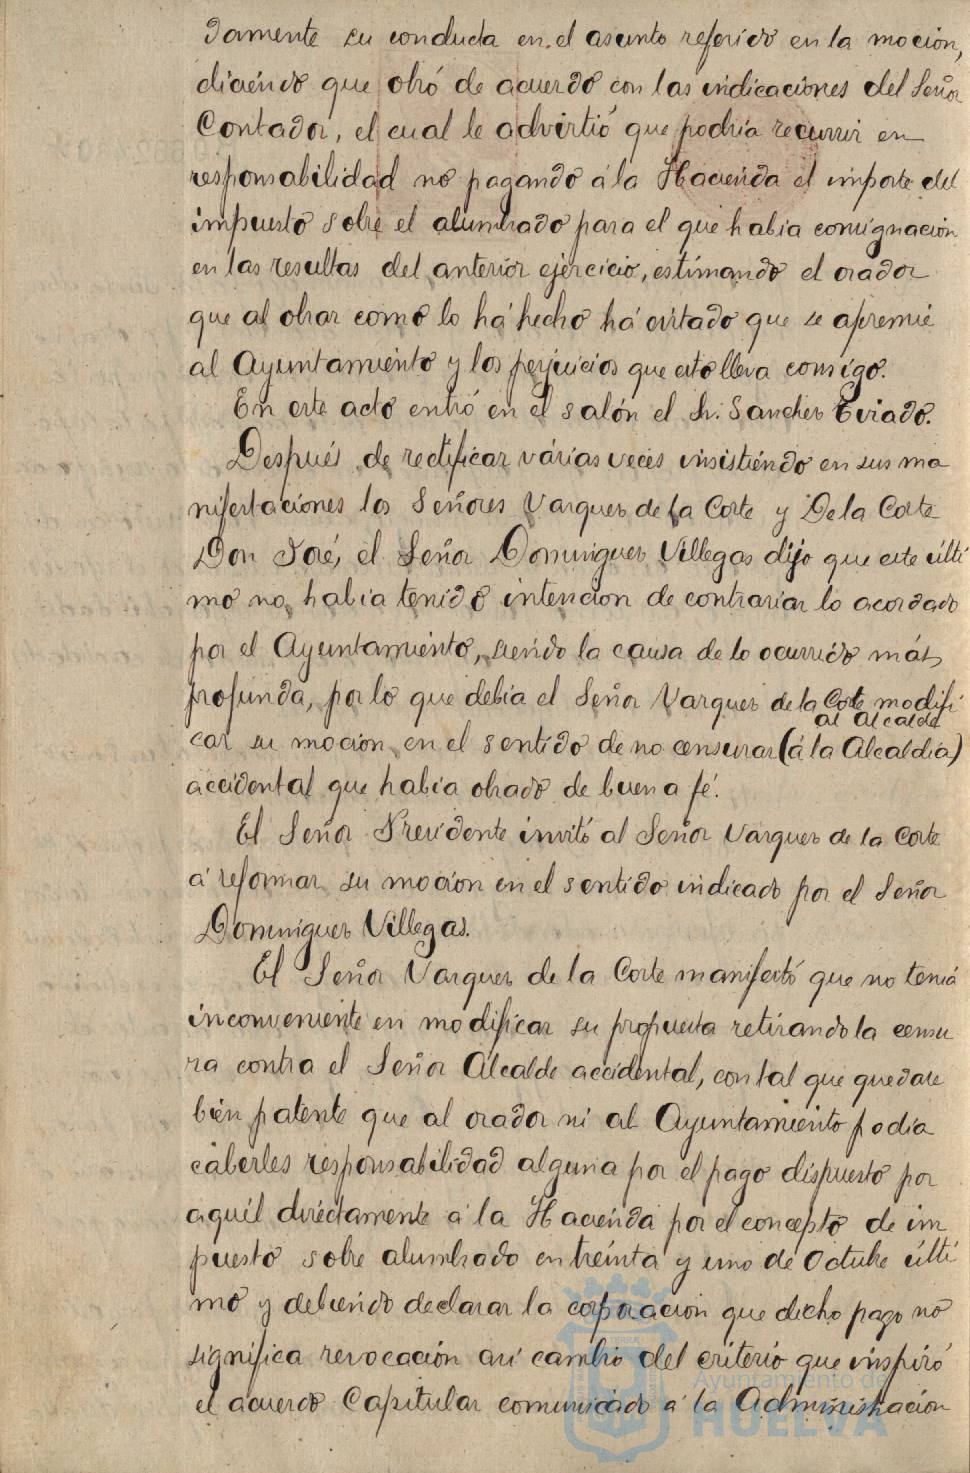 damente su conducta en el asunto referido en la moción,
diciendo que obró de acuerdo con las indicaciones del Señor
Contador, el cual le advirtió que podría recurrir en
responsabilidad no pagando á la Hacienda el importe del
impuesto sobre el alumbrado para el que habia consignacion
en las resultas del anterior ejercicio, estimando el orador
que al obrar como lo há hecho há evitado que se apremie
al Ayuntamiento y los perjuicios que esto lleva consigo.
En este acto entró en el salón el Sr. Sanchez Eviado.
Después de rectificar várias veces insistiendo en sus ma
nifestaciones los Señores Vazquez de la Corte y De la Corte
Don José, el Señor Dominguez Villegas dijo que este últi
mo no habia tenido intencion de contrariar lo acordado
por el Ayuntamiento, siendo la causa de lo ocurrido más
profunda, por lo que debia el Señor Vazquez de la Corte modifi
al Alcalde
car su mocion en el sentido de no censurar (á la Alcaldia)
accidental que habia obrado de buena fé.
El Señor Presidente invitó al Señor Vazquez de la Corte
á reformar su mocion en el sentido indicado por el Señor
Dominguez Villegas.
El Señor Vazquez de la Corte manifestó que no tenia
inconveniente en modificar su propuesta retirando la censu
ra contra el Señor Alcalde accidental, con tal que quedase
bien patente que al orador ni al Ayuntamiento podia
caberles responsabilidad alguna por el pago dispuesto por
aquél directamente á la Hacienda por el concepto de im
puesto sobre alumbrado en treinta y uno de Octubre últi
mo y debiendo declarar la corporacion que dicho pago no
significa revocación ni cambio del criterio que inspiró
el acuerdo Capitular comunicado á la Administración
Ayuntamiento de
HUELVA